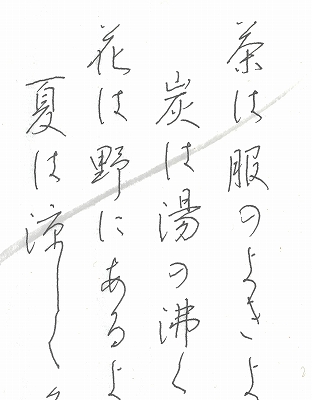 茶は服のよきよ
炭は湯の沸く
花は野にあるよ
夏は涼しく